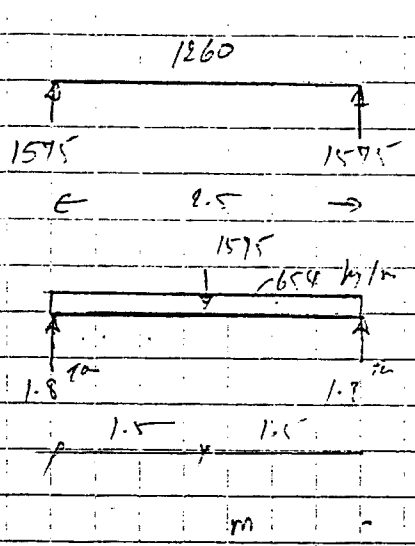 1260
1575 1575
2.5
1575
654 kg/m
1.8 1.8
1.5 1.5
m